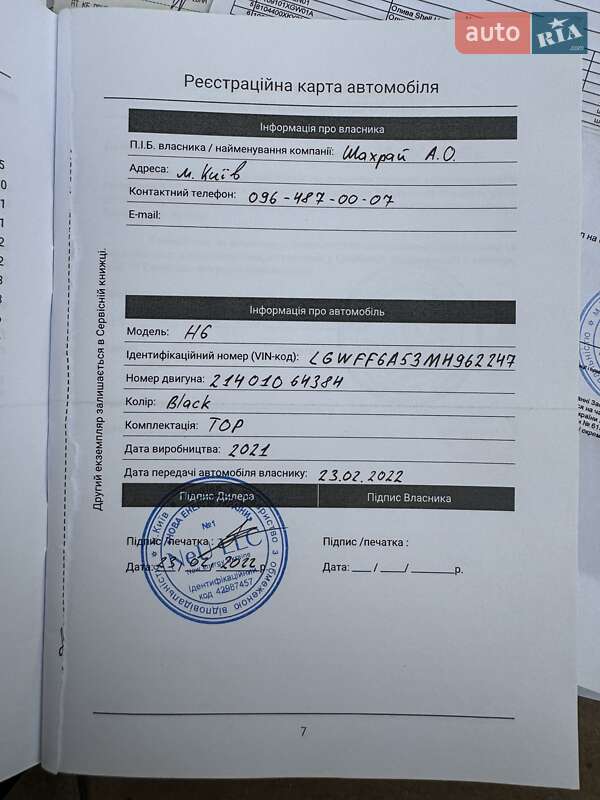 auto RIA
.com
Олива Shell
Реєстраційна карта автомобіля
Інформація про власника
П.І.Б. власника / найменування компанії: Шахрай А.О.
Адреса: м. Київ
Контактний телефон: 096-487-00-07
E-mail:
Інформація про автомобіль
Модель: H6
Ідентифікаційний номер (VIN-код): LGWFF6A53MH962247
Номер двигуна: 21401064384
Колір: Black
Комплектація: TOP
Дата виробництва: 2021
Дата передачі автомобіля власнику: 23.02.2022
Підпис Дилера Підпис Власника
Підпис /печатка : Підпис /печатка :
Дата: 23 02 2022 р. Дата: ___ / ____/ ________р.
№1
NeU LLC
New Energy Ukraine
Ідентифікаційний
код 42987457
Київ
Товариство з обмеженою відповідальністю
Другий екземпляр залишається в Сервісній книжці.
7